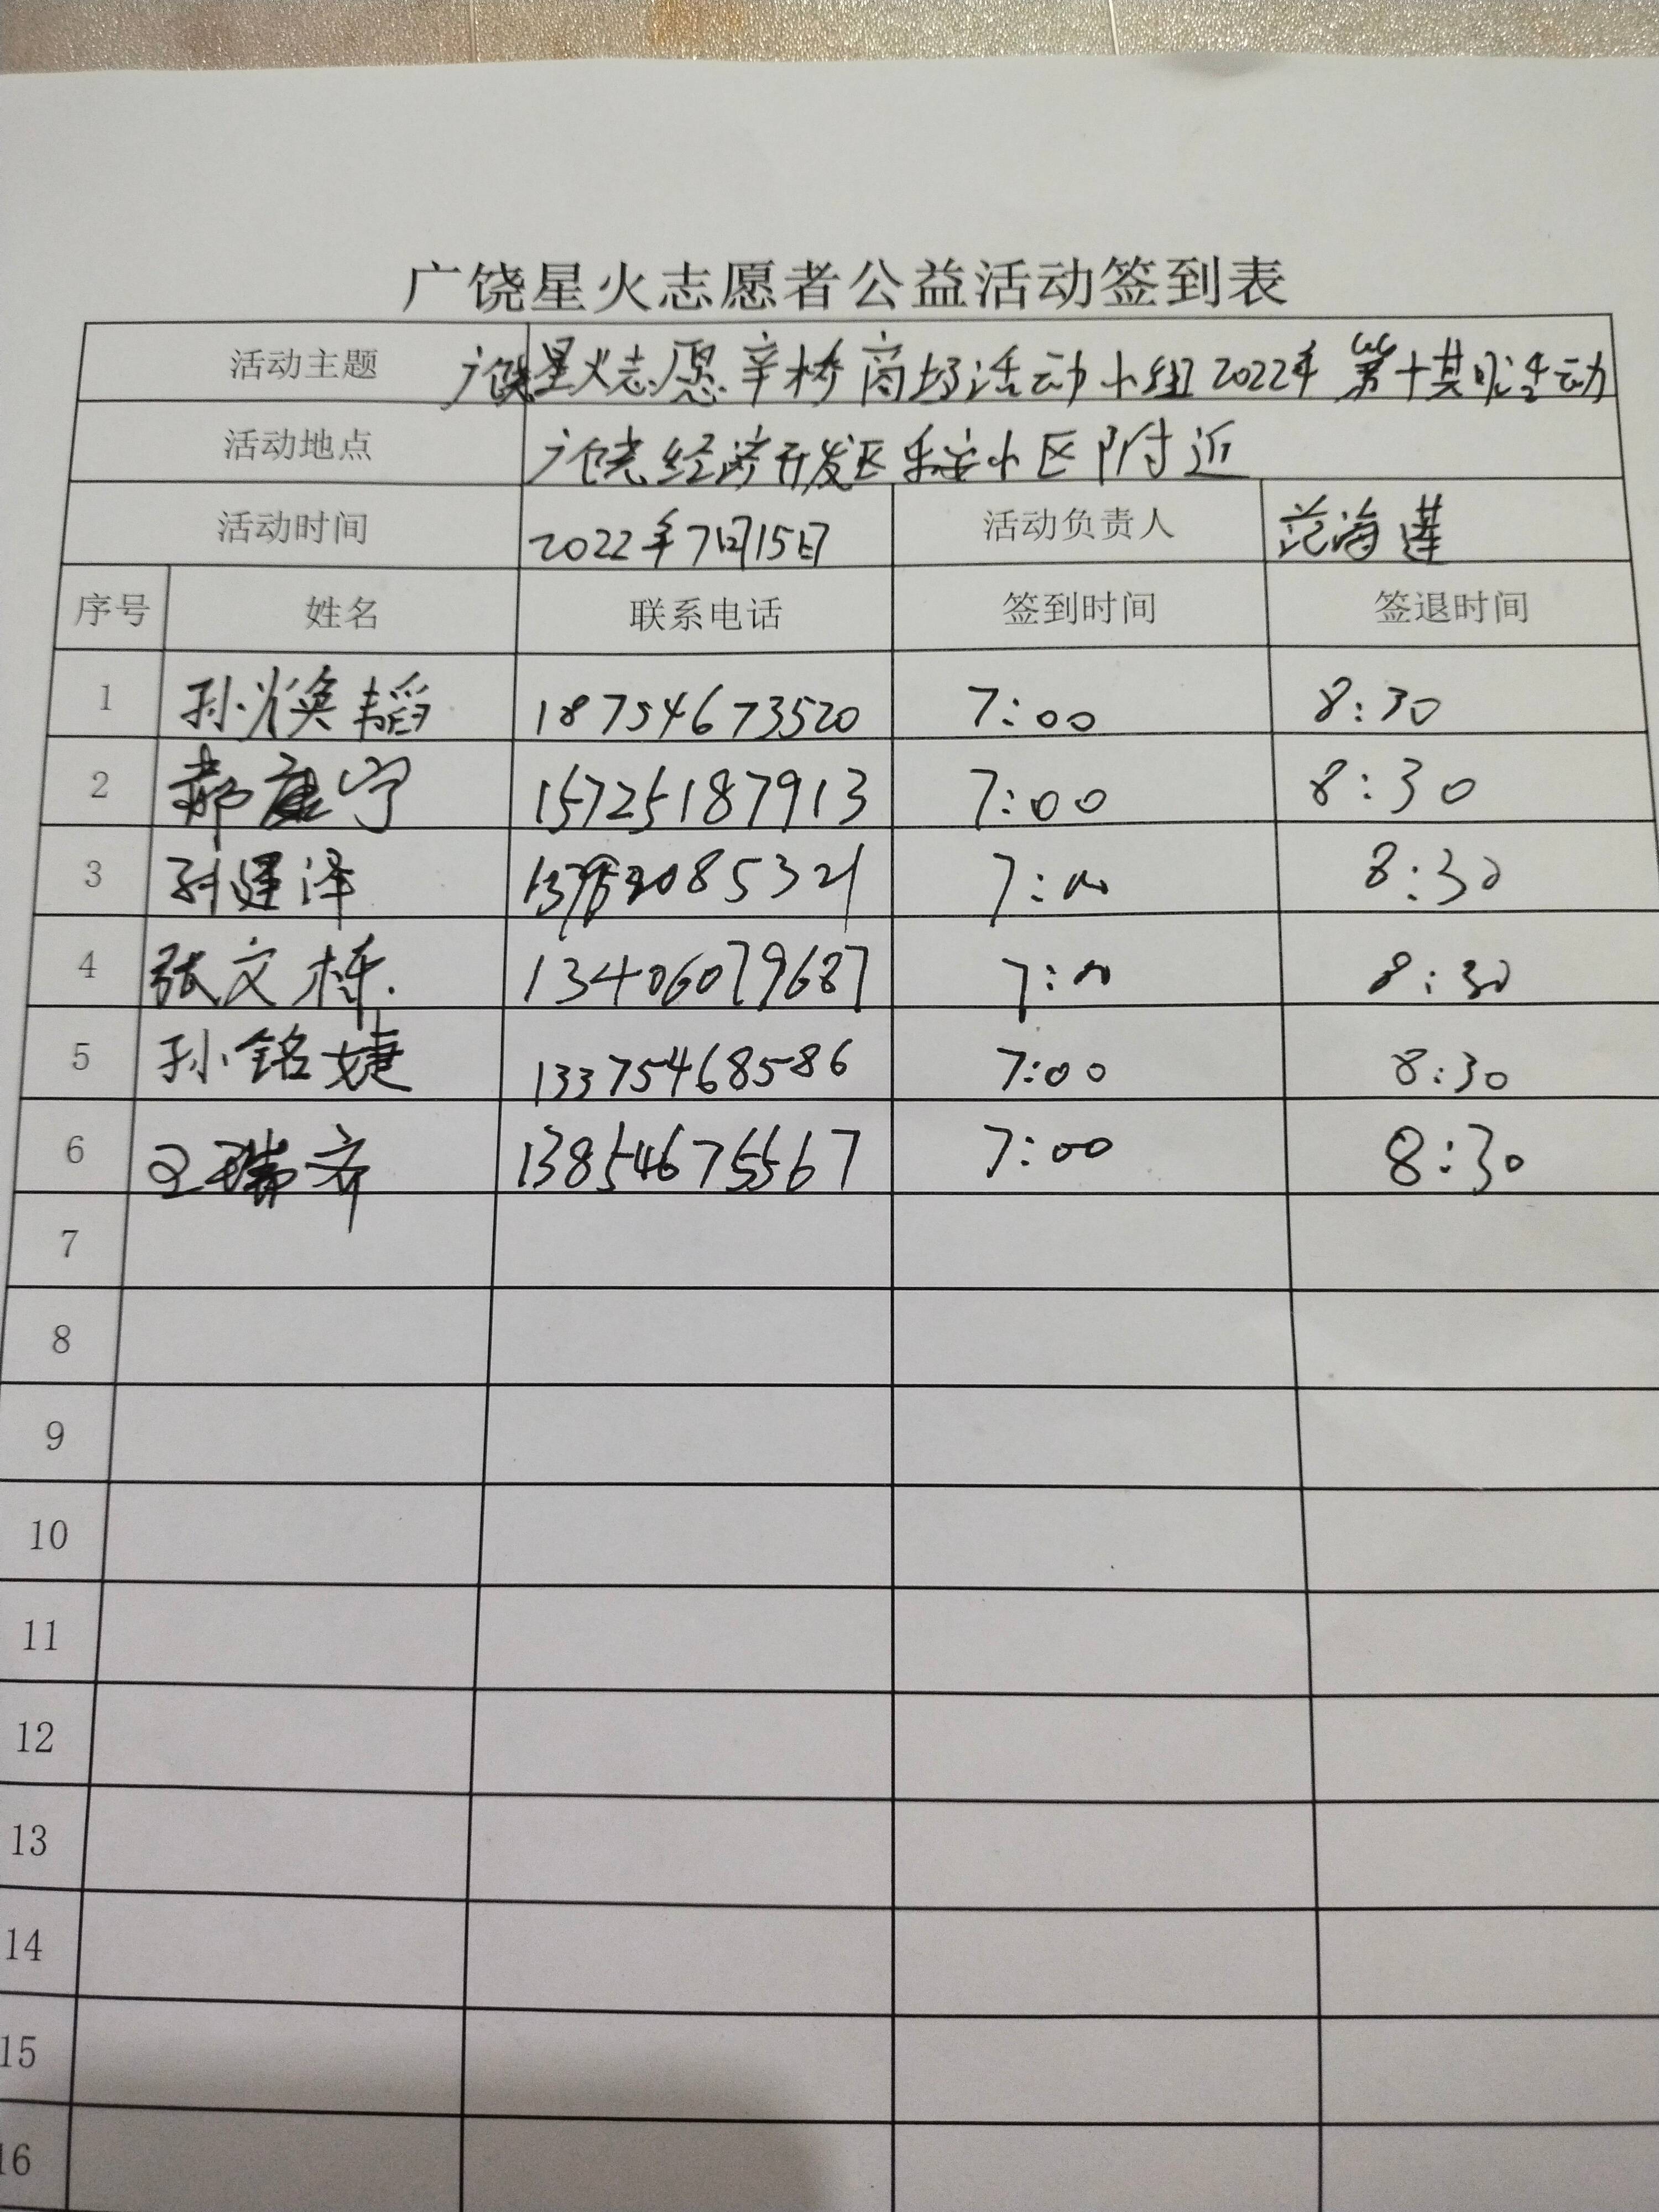 广饶星火志愿者公益活动签到表
活动主题 广饶星火志愿辛桥商场活动小组2022年第十期活动
活动地点 广饶经济开发区乐安小区附近
活动时间 2022年7月15日 活动负责人 范海莲
序号 姓名 联系电话 签到时间 签退时间
1 孙焕韬 18754673520 7:00 8:30
2 郝康宁 15725187913 7:00 8:30
3 孙建泽 7:00 8:30
4 张文栋 13406079687 7:00 8:30
5 孙铭婕 13375468586 7:00 8:30
6 王瑞齐 13854675567 7:00 8:30
7
8
9
10
11
12
13
14
15
16